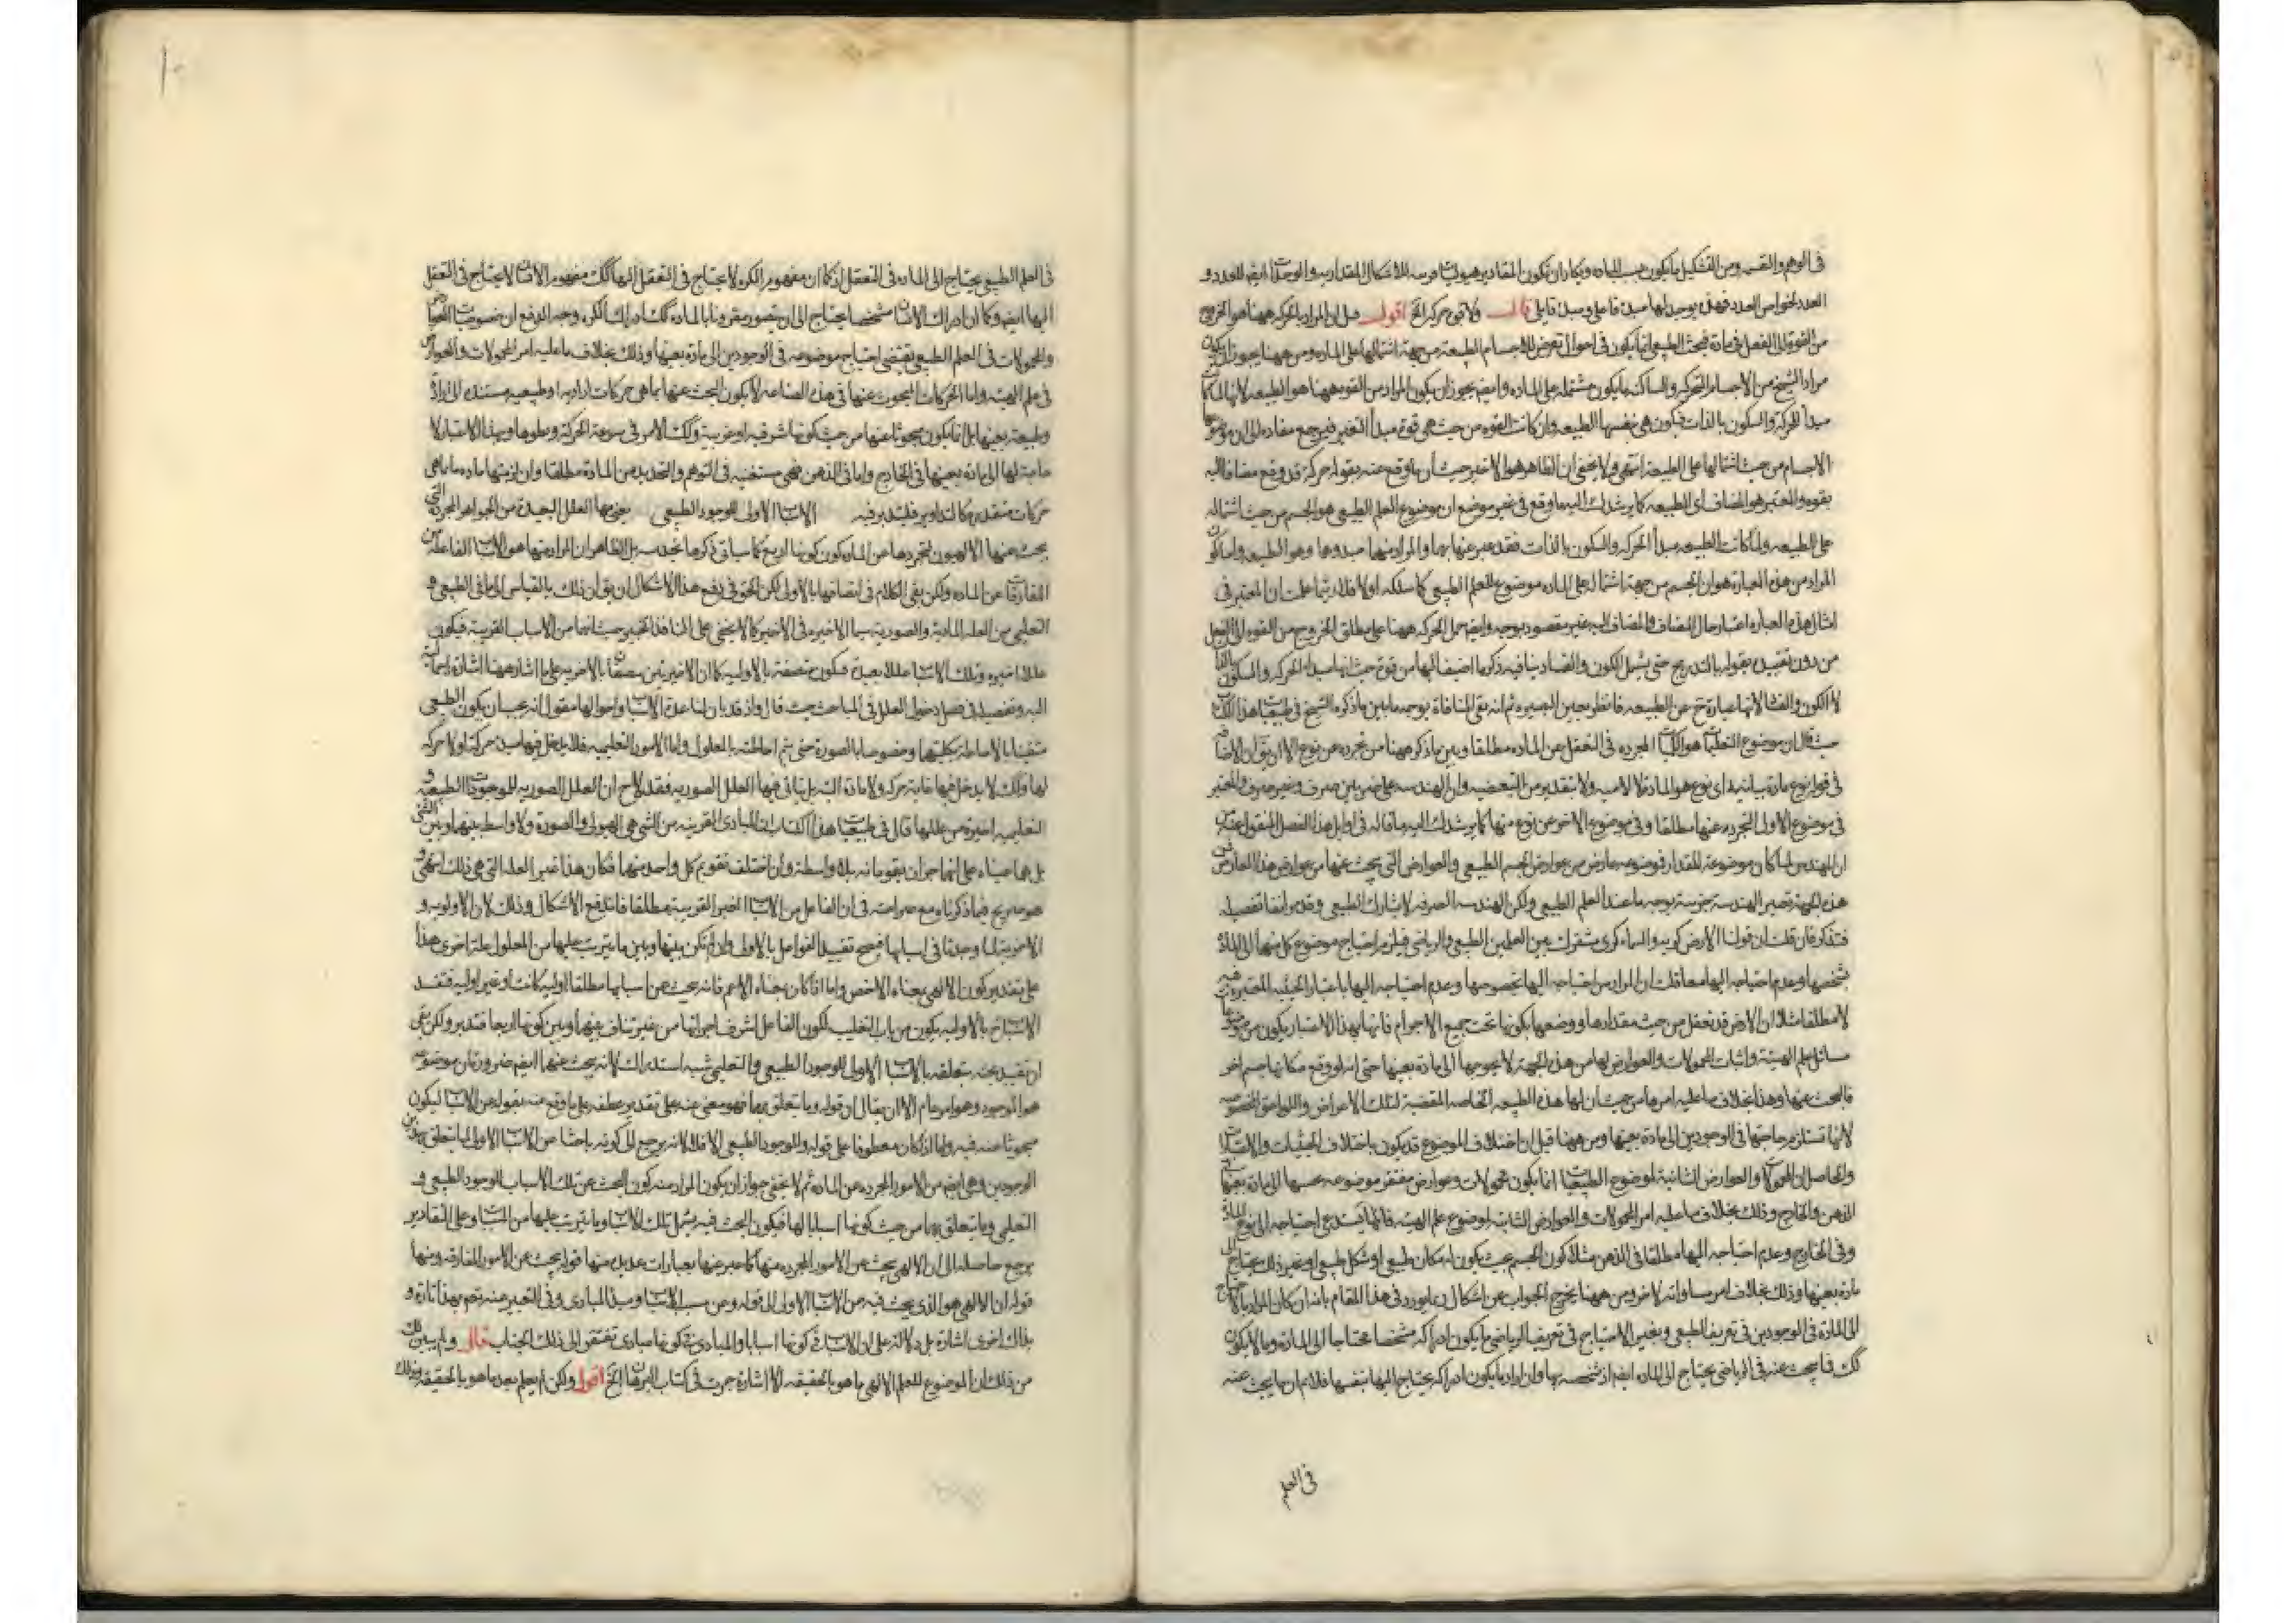 في الوهم والقسمه ومن التشكيل ما يكون بحسب الماده ويكاد ان يكون المقادير هيوليات قريبه للاشكال المقداريه والوحدات ايضا للعدد و
العدد لخواص العدد فهل يوجد لها مبدء فاعلي ومبدء قابلي قال ولا قوى حركه الخ اقول قيل ان المراد بالحركه ههنا هو الخروج
من القوة الى الفعل في مادة فبحث الطبيعي انما يكون في احوال تعرض للاجسام الطبيعة من جهة اشتمالها على الماده ومن ههنا يجوز ان يكون
مراد الشيخ من الاجسام المتحركه والساكنه ما يكون مشتمله على الماده وايضا يجوز ان يكون المراد من القوه ههنا هو الطبيعه لانها لما كانت
مبدأ للحركة والسكون بالذات فيكون هي نفسها الطبيعه وان كانت القوه من حيث هي قوة مبدأ التغير فيرجع مفاده الى ان موضوعها
الاجسام من حيث اشتمالها على الطبيعة انتهى ولا يخفى ان الظاهر هو الاخير حيث ان ما وقع عنه بقوله حركة قد وقع مضافا اليه
بقوه والمعتبر هو المضاف اى الطبيعه كما يرشدك اليه ما وقع في غير موضع ان موضوع العلم الطبيعي هو الجسم من حيث اشتماله
على الطبيعه ولما كانت الطبيعه مبدأ الحركه والسكون بالذات فقد عبر عنها بهما والمراد منهما مبدوها وهو الطبيعه واما كون
المراد من هذه العبارة هو ان الجسم من جهة اشتماله على الماده موضوع للعلم الطبيعي كما سلكه اولا فلا ريثما علمت ان المعتبر في
امثال هذه العباره اعتبار حال المضاف والمضاف اليه غير مقصود بوجه وايضا حمل الحركه ههنا على مطلق الخروج من القوه الى الفعل
من دون تقييده بقوله بالتدريج حتى يشمل الكون والفساد ينافيه ذكر ما اضيف اليها من قوة حيث انها مبدء الحركه والسكون بالذات
لا الكون والفساد لانها عبارة ح عن الطبيعه فانظر بعين البصيره ثم انه بقى المنافاة بوجه ما بين ما ذكره الشيخ في طبيعيات هذا الكتاب
حيث قال ان موضوع التعليمات هو الكميات المجرده في التعقل عن الماده مطلقا وبين ما ذكر ههنا من تجرده عن نوع الا ان يقال ان الاضافة
في قوله نوع مادة بيانيه اى نوع هو المادة لا لاميه ولا بتقدير من التبعيضيه وان الهندسه على ضربين صرف وغير صرف والمعتبر
في موضوع الاولى التجرد عنها مطلقا وفي موضوع الاخر عن نوع منها كما يرشدك اليه ما قاله في اوايل هذا الفصل المنقول عنه
ان المهندس لما كان موضوعه المقدار فموضوعه عارض من عوارض الجسم الطبيعي والعوارض التى يبحث عنها من عوارض هذا العارض فمن
هذه الجهة تصير الهندسة جزئية بوجه ما عند العلم الطبيعي ولكن الهندسه الصرفه لا يشارك الطبيعي وقد مر انفا تفصيله
فتذكر فان قلت ان قولنا الارض كريه والسماء كرى مشترك بين العلمين الطبيعي والرياضي فيلزم احتياج موضوع كل منهما الى المادة
بشخصها وعدم احتياجه اليها معا قلت ان المراد من احتياجه اليها بخصوصها وعدم احتياجه اليها باعتبار الحيثيه المعتبره فيه
لا مطلقا مثلا ان الارض قد تعقل من حيث مقدارها ووضعها بكونها تحت جميع الاجرام فانها بهذا الاعتبار يكون من موضوعات
مسائل علم الهيئة واثبات المحمولات والعوارض لها من هذه الجهة لا يحوجها الى مادة بعينها حتى انه لو وقع مكانها جسم اخر
فالبحث عنها وهذا بخلاف ما عليه امرها من حيث ان لها هذه الطبيعه الخاصه المقتضية لتلك الاعراض واللواحق المخصوصه
لانها تستلزم حاجتها في الوجودين الى مادة بعينها ومن ههنا قيل ان اختلاف الموضوع قد يكون باختلاف الحيثيات والاعتبارات
والحاصل ان المحمولات والعوارض الثانية لموضوع الطبيعيات انما يكون محمولات وعوارض مفتقر موضوعه بحسبها الى مادة بعينها في
الذهن والخارج وذلك بخلاف ما عليه امر المحمولات والعوارض الثابته لموضوع علم الهيئه فانها يستدعي احتياجه الى نوع المادة
وفي الخارج وعدم احتياجه اليها مطلقا في الذهن مثلا كون الجسم بحيث يكون له مكان طبيعي او شكل طبيعي او غير ذلك يحتاج الى
مادة بعينها وذلك بخلاف امر مساواته لاخر ومن ههنا يخرج الجواب عن اشكال ربما يورد في هذا المقام بانه ان كان المراد بالاحتياج
الى المادة في الوجودين في تعريف الطبيعي وبغير الاحتياج في تعريف الرياضي ما يكون ادراكه مشخصا محتاجا الى المادة وما لا يكون
كك فما يبحث عنه في الرياضي يحتاج الى الماده ايضا اذ تشخصه بها وان اراد ما يكون ادراكه يحتاج اليها بنفسها فلا نم ان ما يبحث عنه
في العلم
في العلم الطبيعي يحتاج الى الماده في التعقل اذ كما ان مفهوم الكره لا يحتاج في التعقل اليها كك مفهوم الانسان لا يحتاج في التعقل
اليها ايضا وكما ان ادراك الانسان مشخصا يحتاج الى ان يتصور مقرونا بالماده كك ادراك الكره وجه الدفع ان خصوصيات العوارض
والمحمولات في العلم الطبيعي يقتضي احتياج موضوعه في الوجودين الى مادة بعينها وذلك بخلاف ما عليه امر المحمولات والعوارض
في علم الهيئه واما الحركات المبحوث عنها في هذه الصناعه لا يكون البحث عنها بما هي حركات اراديه او طبيعيه مستنده الى ارادة
وطبيعة بعينها بل انما يكون مبحوثا عنها من حيث كونها شرقيه او غربية وكك الامر في سرعة الحركة وبطوها وبهذا الاعتبار لا
حاجة لها الى مادة بعينها في الخارج واما في الذهن فهي مستغنيه في التوهم والتحديد عن المادة مطلقا وان لزمتها ماده ما بما هي
حركات متقدره كالتداوير فليتدبر فيه الاسباب الاولى للوجود الطبيعي يعني بها العلل البعيدة من الجواهر المجردة التي
يبحث عنها الالهيون لتجردها عن الماده كون كونها اربع كما سياتي ذكرها بل الظاهر ان المراد منها هو الاسباب الفاعله من
المفارقات عن الماده ولكن بقى الكلام في اتصافها بالاولى لكن الحق في دفع هذا الاشكال ان يق ان ذلك بالقياس الى ما في الطبيعي و
التعليمي من العلة المادية والصورية سيما الاخيره في الاخير كما لا يخفى على الناقد الخبير حيث انهما من الاسباب القريبة فيكون
عللا اخيره وتلك الاسباب عللا بعيدة فيكون متصفة بالاوليه كما ان الاخيرتين متصفتان بالاخريه على ما اشار ههنا اشارة اجمالية
اليه وتفصيله في فصل دخول العلل في المباحث حيث قال واذ قد بان لنا عدة الاسباب واحوالها فنقول انه يجب ان يكون الطبيعي
متفننا بالاحاطه بكليتها وخصوصا بالصورة حتى يتم احاطته بالمعلول واما الامور التعليميه فلا يدخل فيها مبدء حركة اولا حركه
لها وكك لا يدخل فيها غاية حركه ولا مادة البته بل يتامل فيها العلل الصوريه فقد لاح ان العلل الصوريه للموجودات الطبيعيه و
التعليميه اخيرة من عللها قال في طبيعيات هذا الكتاب ان المبادى القريبه من الشي هي الهيولى والصورة ولا واسطه بينهما وبين الشي
بل هما علتاه على انهما جزآن يقومانه بلا واسطة وان اختلف تقويم كل واحد منهما فكان هذا غير العله التي هي ذلك انتهى و
هو صريح فيما ذكرناه مع صراحته في ان الفاعل من الاسباب الغير القريبة مطلقا فاندفع الاشكال وذلك لان الاولويه و
الاخريه لما وجدتا في اسبابها فصح تقييد الفواعل بالاولى وان لم يكن بينها وبين ما يترتب عليها من المعلول علة اخرى هذا
على تقدير كون الالهي بمعناه الاخص واما اذا كان بمعناه الاعم فانه يبحث عن اسبابها مطلقا اوليه كانت او غير اوليه فتقييد
الاسباب ح بالاوليه يكون من باب التغليب لكون الفاعل اشرف اجزائها من غير تناف بينها وبين كونها اربعا فتدبر ولكن بقى
ان تقييد بحثه بتعلقه بالاسباب الاولى للوجود الطبيعي والتعليمي شبه استدراك لانه يبحث عنها ايضا ضرورة ان موضوعه
هو الموجود وهو امر عام الا ان يقال ان قوله وما يتعلق بهما فهو مغني عنه على تقدير عطفه على ما وقع عنه بقوله عن الاسباب ليكون
مبحوثا عنه فيه واما اذا كان معطوفا على قوله والموجود الطبيعي الا فلا لانه يرجع الى كونه باحثا عن الاسباب الاولى لما يتعلق بهذين
الوجودين وهي ايضا من الامور المجرده عن الماده ثم لا يخفى جواز ان يكون المراد منه كون البحث عن تلك الاسباب للوجود الطبيعي و
التعليمي وما يتعلق بهما من حيث كونها اسبابا لها فيكون البحث فيه يشمل تلك الاسباب وما يترتب عليها من المسببات وعلى التقادير
يرجع حاصله الى ان الالهي يبحث عن الامور المجرده منها كما عبر عنها بعبارات عديده منها قوله يبحث عن الامور المفارقه ومنها
قوله ان الالهي هو الذي يبحث فيه عن الاسباب الاولى الى قوله وعن مسبب الاسباب ومبدأ المبادى وفي التعبير عنه تعم بهذا تارة و
بذاك اخرى اشارة بل دلالة على ان الاسباب في كونها اسبابا والمبادى في كونها مبادى تفتقر الى ذلك الجناب قال ولم يبين لك
من ذلك ان الموضوع للعلم الالهي ما هو بالحقيقه الا اشارة جرت في كتاب البرهان الخ اقول ولكن لم يعلم بعد ما هو بالحقيقه وذلك